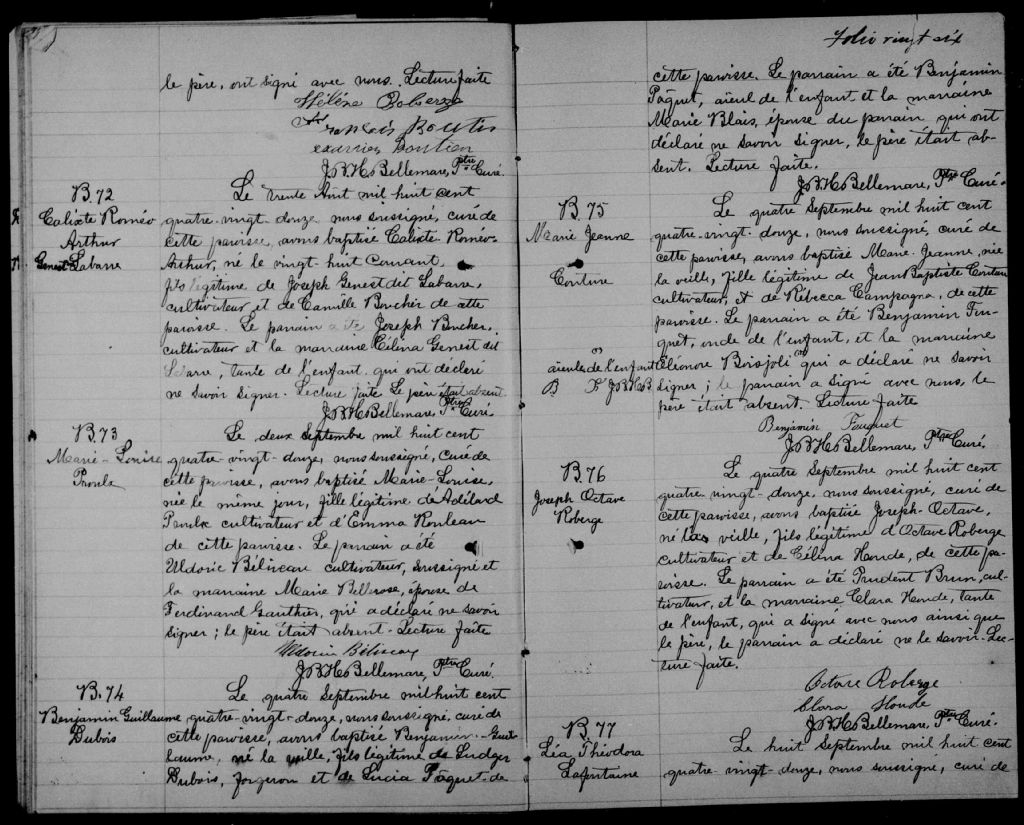 le père, ont signé avec nous. Lecture faite
Hélène Roberge
François Boutin
Boutin
JBHBellemare, Ptre Curé.
B.72
Calixte Roméo
Arthur
Genest Labarre
Le trente Août mil huit cent
quatre-vingt-douze, nous soussigné, curé de
cette paroisse, avons baptisé Calixte-Roméo-
Arthur, né le vingt-huit Courant
fils légitime de Joseph Genest dit Labarre,
cultivateur et de Camille Boucher de cette
paroisse. Le parrain a été Joseph Boucher,
cultivateur et la marraine Célina Genest dit
Labarre, tante de l'enfant qui ont déclaré
ne savoir signer. Lecture faite Le père était absent
JBHBellemare, Ptre Curé
B.73
Marie-Louise
Proulx
Le deux Septembre mil huit cent
quatre-vingt-douze, nous soussigné, curé de
cette paroisse, avons baptisé Marie-Louise,
née le même jour, fille légitime d'Adélard
Proulx cultivateur et d'Emma Rouleau
de cette paroisse. Le parrain a été
Uldoric Béliveau cultivateur, soussigné et
la marraine Marie Bellerose, épouse de
Ferdinand Gauthier, qui a déclaré ne savoir
signer; le père était absent. Lecture faite
Béliveau
JBHBellemare, Ptre Curé.
B.74
Benjamin Guillaume
Dubois
Le quatre Septembre mil huit cent
quatre-vingt-douze, nous soussigné, curé de
cette paroisse, avons baptisé Benjamin-Guil-
laume, né la veille, fils légitime de Ludger
Dubois, forgeron et de Lucia Pâquet de
Folio vingt six
cette paroisse. Le parrain a été Benjamin
Pâquet, aïeul de l'enfant et la marraine
Marie Blais, épouse du parrain qui ont
déclaré ne savoir signer, le père était ab-
sent. Lecture faite.
JBHBellemare, Ptre Curé.
B.75
Marie Jeanne
Couture
Le quatre Septembre mil huit cent
quatre-vingt-douze, nous soussigné, curé de
cette paroisse, avons baptisé Marie-Jeanne, née
la veille, fille légitime de Jean Baptiste Couture
cultivateur, et de Rébecca Campagna, de cette
paroisse. Le parrain a été Benjamin Fou-
quet, oncle de l'enfant, et la marraine
Eléonore Boisjoli qui a déclaré ne savoir
aïeule de l'enfant
JBHB
signer; le parrain a signé avec nous, le
père était absent. Lecture faite
Benjamin Fouquet
JBHBellemare, Ptre Curé.
B.76
Joseph Octave
Roberge
Le quatre Septembre mil huit cent
quatre-vingt-douze, nous soussigné, curé de
cette paroisse, avons baptisé Joseph-Octave,
né la veille, fils légitime d'Octave Roberge
cultivateur et de Célina Houde, de cette pa-
roisse. Le parrain a été Prudent Brun, cul-
tivateur, et la marraine Clara Houde, tante
de l'enfant, qui a signé avec nous ainsi que
le père, le parrain a déclaré ne le savoir. Lec-
ture faite.
Octave Roberge
Clara Houde
JBHBellemare, Ptre Curé.
B.77
Léa Théodora
Lafontaine
Le huit Septembre mil huit cent
quatre-vingt-douze, nous soussigné, curé de